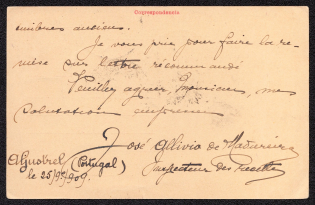 Correspondance
timbres anciens.
Je vous prie, pour faire la re-
mise sur lettre recommandé
Veuillez agreer, Monsieur, mes
salutation empressée
José Allivio de Madureira
Inspecteur des
Aljustrel
(Portugal)
le 25/9º/909.